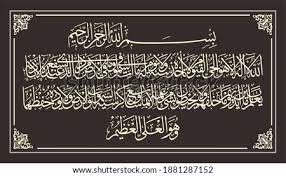 بسم الله الرحمن الرحيم
الله لا إله إلا هو الحي القيوم لا تأخذه سنة ولا نوم له ما في السموات وما في الأرض من ذا الذي يشفع عنده إلا بإذنه
يعلم ما بين أيديهم وما خلفهم ولا يحيطون بشيء من علمه إلا بما شاء وسع كرسيه السموات والأرض ولا يؤده حفظهما
وهو العلي العظيم
shutterstock.com · 1881287152